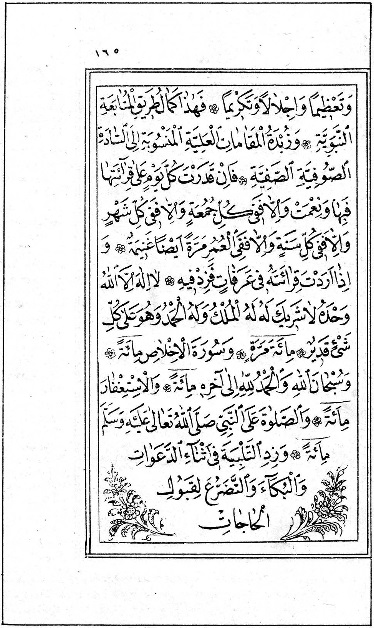 ١٦٥
وَتَعْظِيمًا وَاِجْلَالًا وَتَكْرِيمًا ❁ فَهٰذَا كَمَالُ طَرِيقِ الْمُتَابَعَةِ
النَّبَوِيَّةِ ❁ وَزُبْدَةُ الْمَقَامَاتِ الْعَلِيَّةِ الْمَنْسُوبَةِ اِلَى السَّادَةِ
الصُّوفِيَّةِ الصَّفِيَّةِ ❁ فَاِنْ قَدَرْتَ كُلَّ يَوْمٍ عَلَى قِرَآئَتِهَا
فَبِهَا وَنِعْمَتْ وَاِلَّا فَفِى كُلِّ جُمُعَةٍ وَاِلَّا فَفِى كُلِّ شَهْرٍ
وَاِلَّا فَفِى كُلِّ سَنَةٍ وَاِلَّا فَفِى الْعُمُرِ مَرَّةً اَيْضًا غَنِيمَةٌ ❁ وَ
اِذَا اَرَدْتَ قِرَائَتَهُ فِى عَرَفَاتٍ فَزِدْ فِيهِ ❁ لَا اِلٰهَ اِلَّا اللّٰهُ
وَحْدَهُ لَا شَرِيكَ لَهُ لَهُ الْمُلْكُ وَلَهُ الْحَمْدُ وَهُوَ عَلَى كُلِّ
شَىْءٍ قَدِيرٌ مِائَةَ مَرَّةٍ ❁ وَسُورَةَ الْاِخْلَاصِ مِائَةً ❁
وَسُبْحَانَ اللّٰهِ وَالْحَمْدُ لِلّٰهِ اِلَى آخِرِهِ مِائَةً ❁ وَالْاِسْتِغْفَارَ
مِائَةً ❁ وَالصَّلٰوةَ عَلَى النَّبِىِّ صَلَّى اللّٰهُ تَعَالَى عَلَيْهِ وَسَلَّمَ
مِائَةً ❁ وَزِدِ التَّلْبِيَةَ فِى اَثْنَآءِ الدَّعَوَاتِ
وَالْبُكَآءَ وَالتَّضَرُّعَ لِقَبُولِ
الْحَاجَاتِ